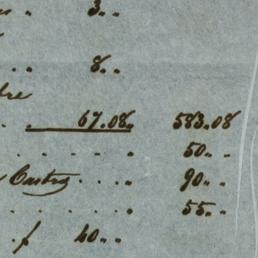 3..
8..
dre
67.08. 583.08
50..
Castro . . . . 90..
55..
f 40..